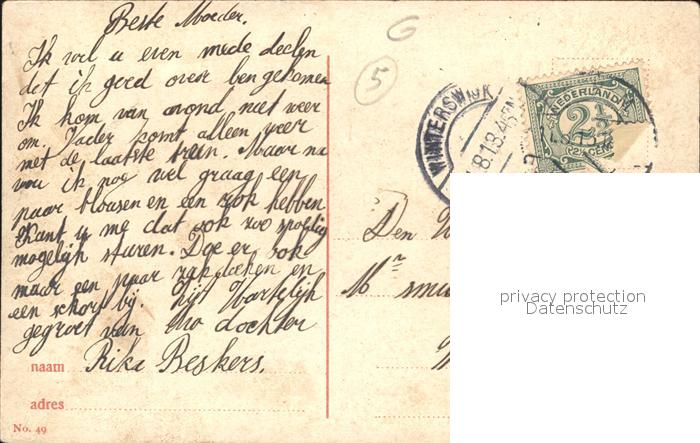 Beste Moeder.
Ik wil u even mede deelen
det ik goed over ben gekomen
Ik kom van avond niet weer
om. Vader komt alleen weer
met de laatste trein. Maar nu
wou ik nog wel graag een
paar blousen en een rok hebben
Kant u me dat ook zoo spoedig
mogelijk sturen. Doe er ook
maar een paar zakdoeken en
een schort bij. Zijt Hartelijk
gegroet van Uw dochter
naam Rika Beskers.
adres
No. 49
G
5
WINTERSWIJK
8.13.4
NEDERLAND
2½
Den
Mr
privacy protection
Datenschutz